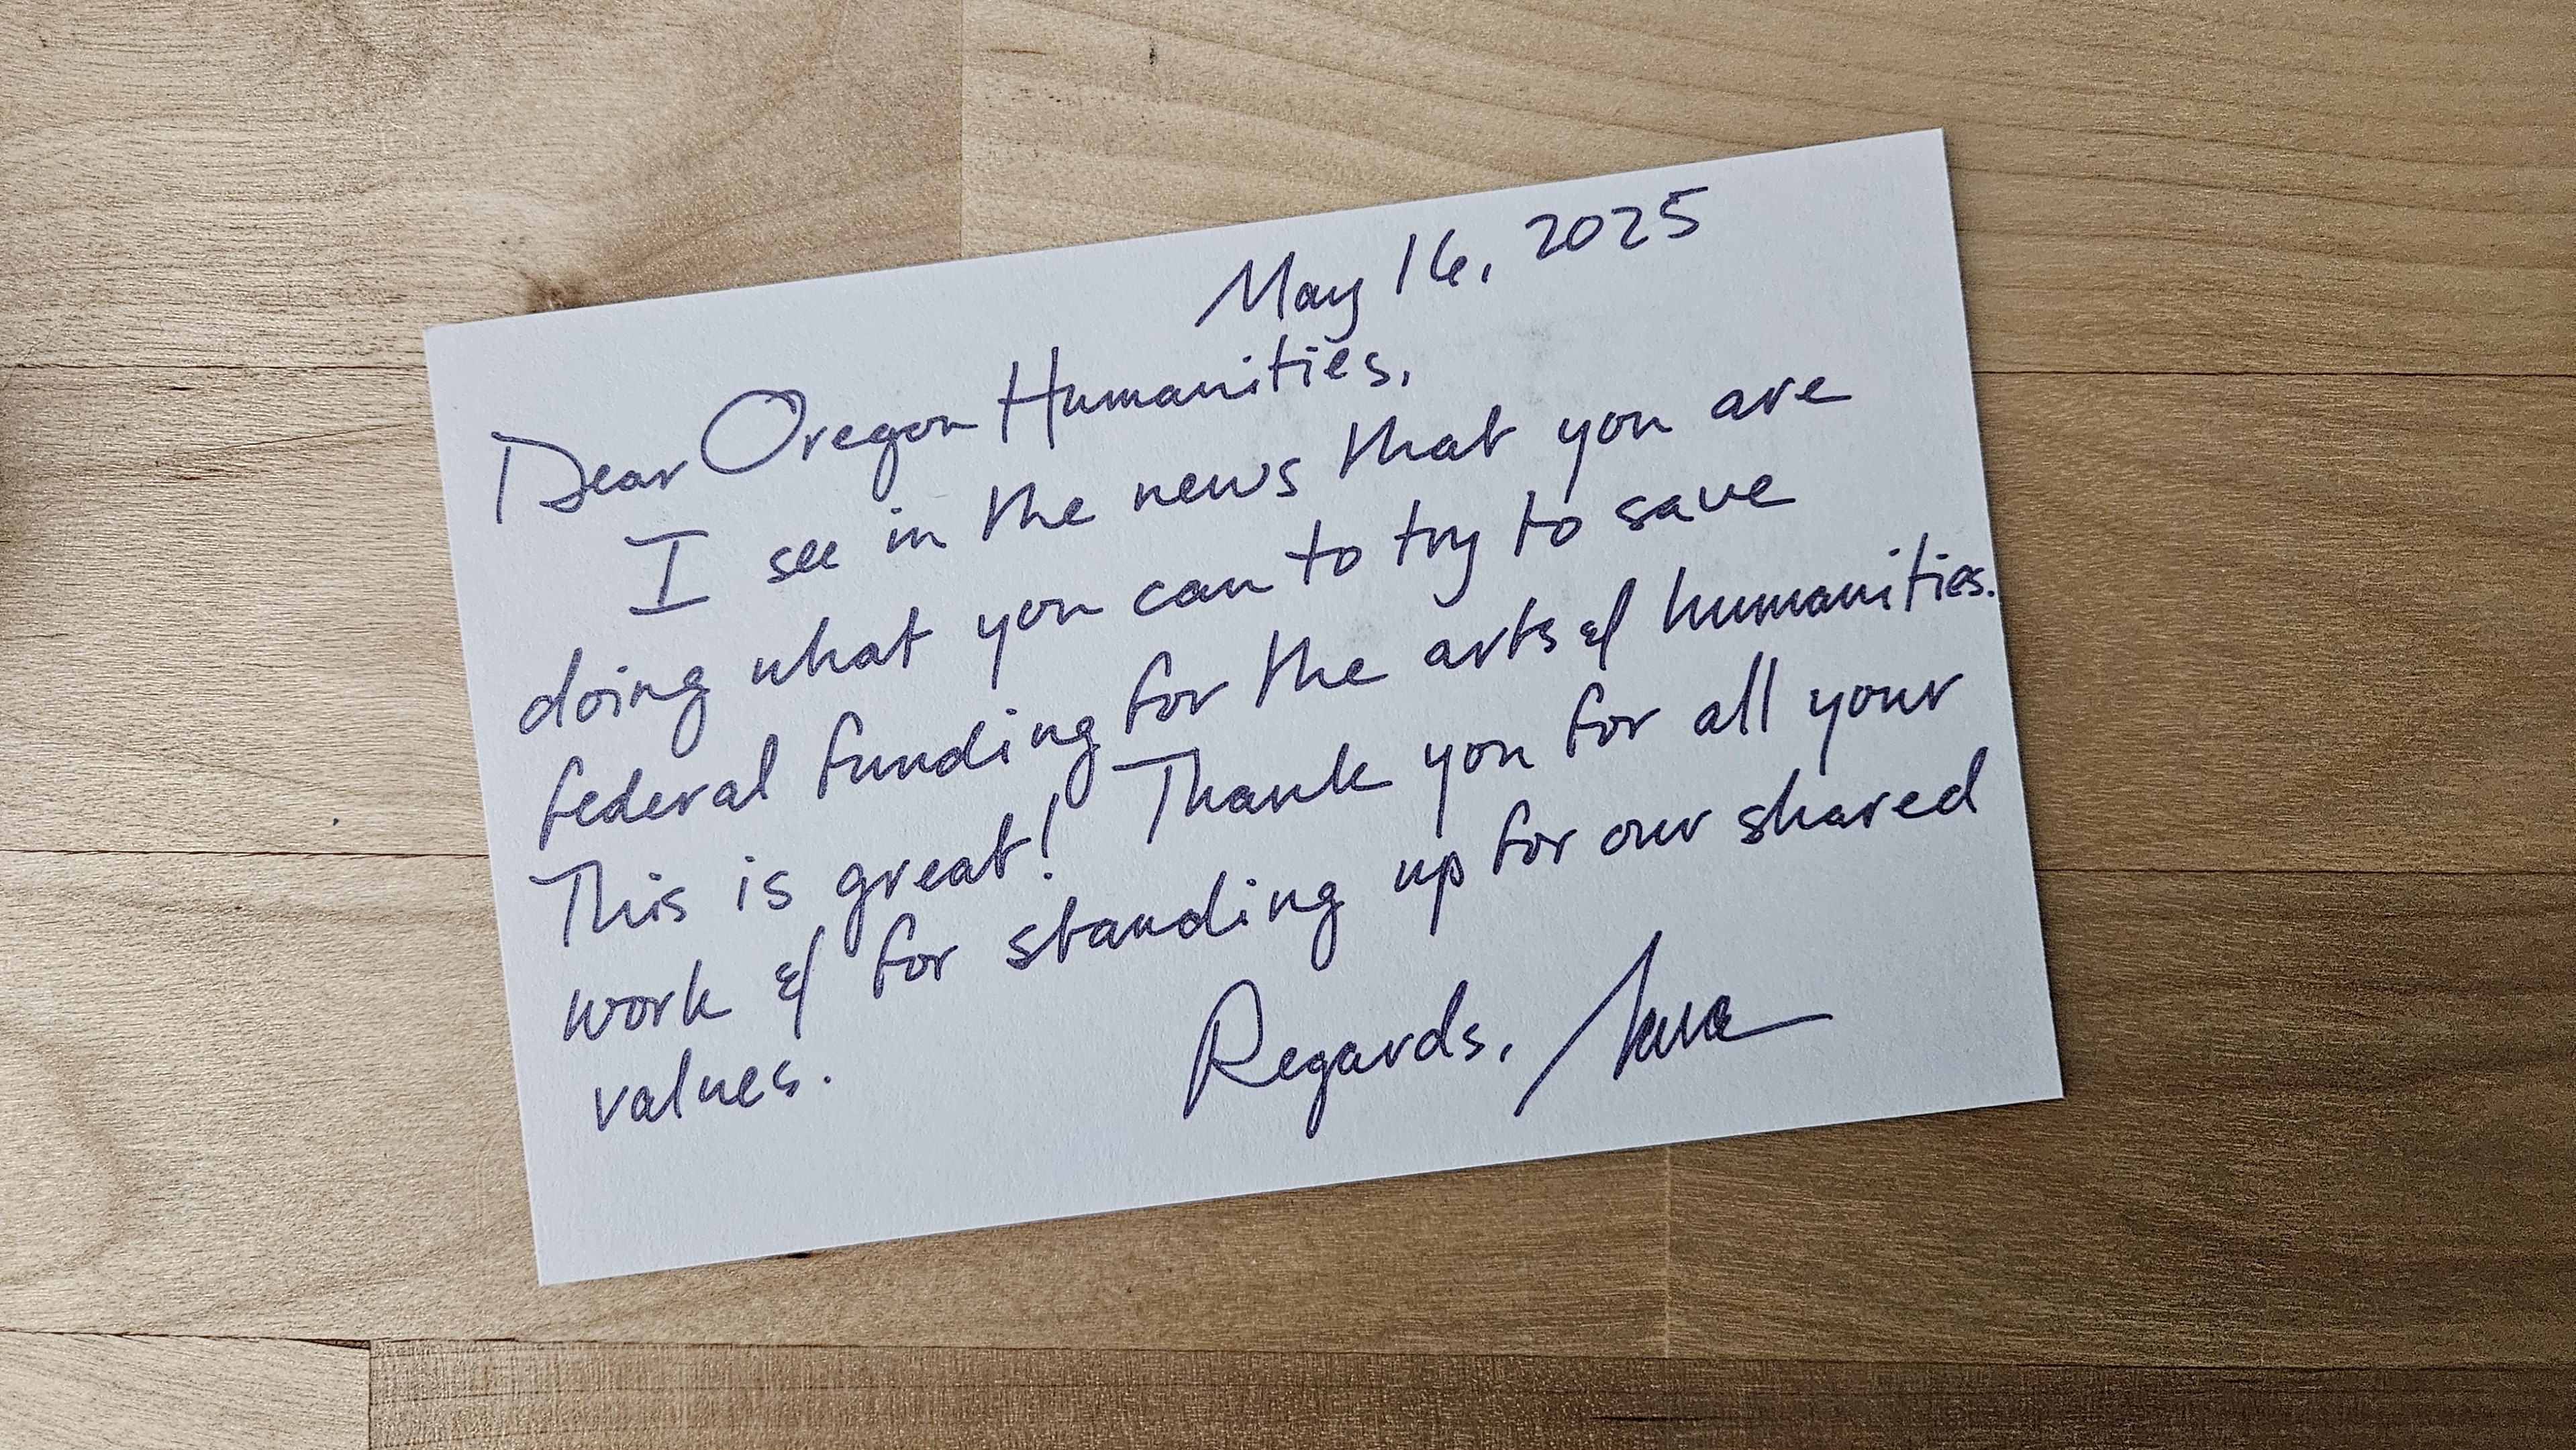 May 16, 2025
Dear Oregon Humanities,
I see in the news that you are
doing what you can to try to save
federal funding for the arts & humanities.
This is great! Thank you for all your
work & for standing up for our shared
values.
Regards,